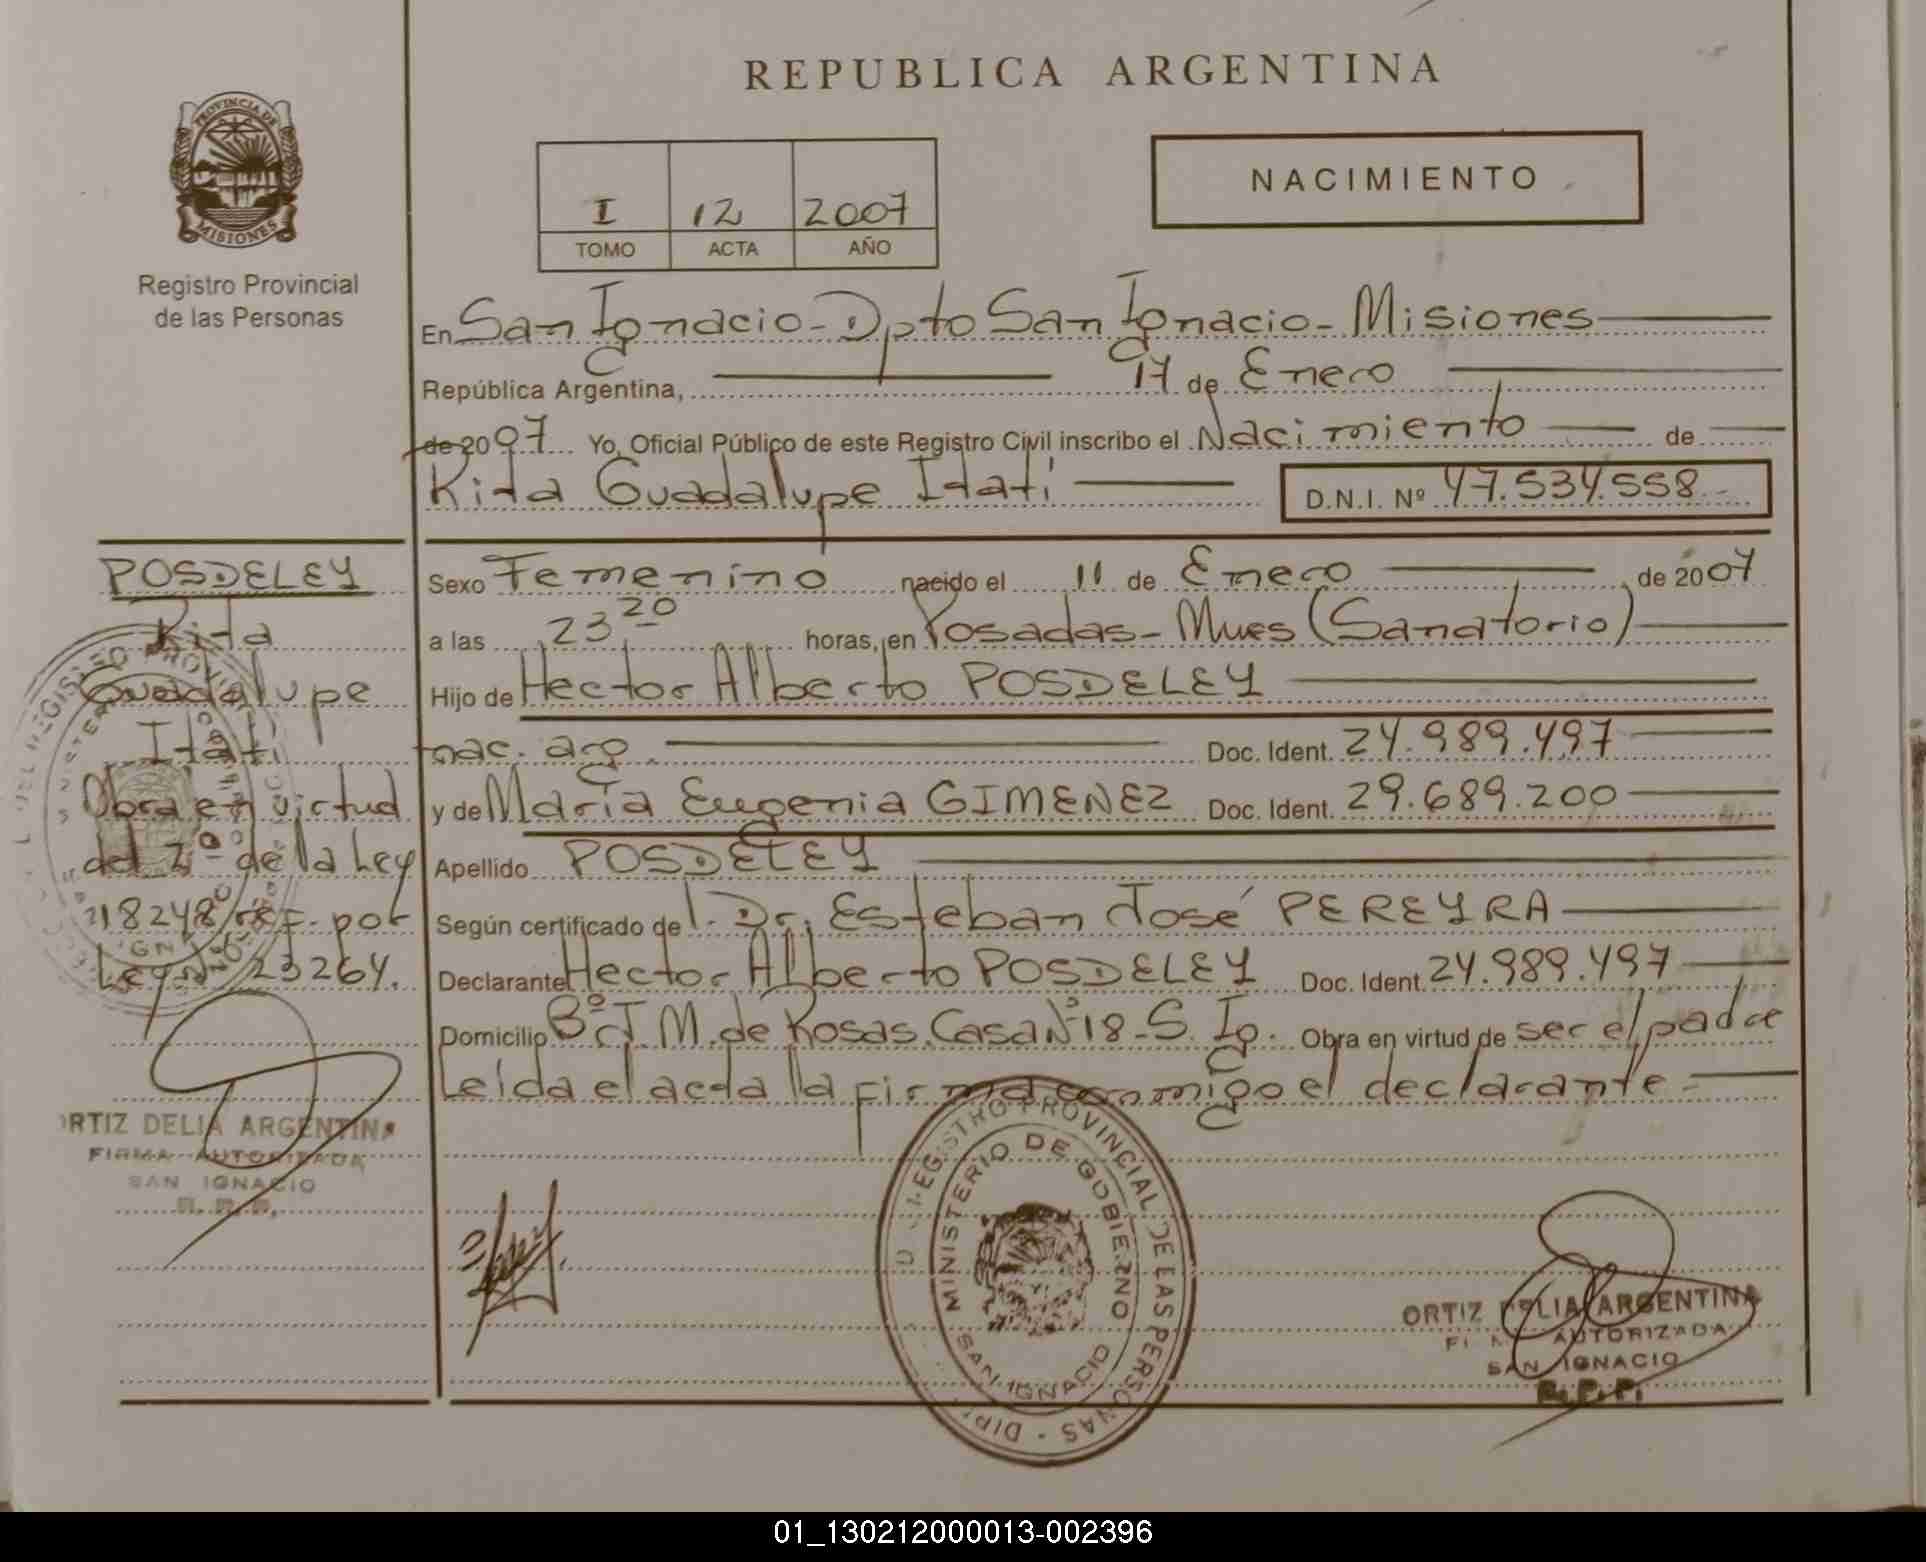 REPUBLICA ARGENTINA
PROVINCIA DE MISIONES
Registro Provincial
de las Personas
I 12 2007
TOMO ACTA AÑO
NACIMIENTO
En San Ignacio - Dpto San Ignacio - Misiones
República Argentina, 17 de Enero
de 2007 Yo, Oficial Público de este Registro Civil inscribo el Nacimiento de
Rita Guadalupe Itatí D.N.I. Nº 47.534.558
Sexo Femenino nacido el 11 de Enero de 2007
a las 23,20 horas, en Posadas - Mnes (Sanatorio)
Hijo de Hector Alberto POSDELEY
nac. arg. Doc. Ident. 24.989.497
y de María Eugenia GIMENEZ Doc. Ident. 29.689.200
Apellido POSDELEY
Según certificado del Dr. Esteban José PEREYRA
Declarante Hector Alberto POSDELEY Doc. Ident. 24.989.497
Domicilio Bº J.M. de Rosas. Casa Nº 18 - S. Ig. Obra en virtud de ser el padre
Leída el acta la firma conmigo el declarante -
POSDELEY
Rita
Guadalupe
Itatí
Obra en virtud
del 2º de la Ley
18248/ ref. por
Ley 23264.
ORTIZ DELIA ARGENTINA
FIRMA AUTORIZADA
SAN IGNACIO
R. P. P.
REGISTRO PROVINCIAL DE LAS PERSONAS
MINISTERIO DE GOBIERNO
SAN IGNACIO
ORTIZ DELIA ARGENTINA
FIRMA AUTORIZADA
SAN IGNACIO
R. P. P.
01_130212000013-002396